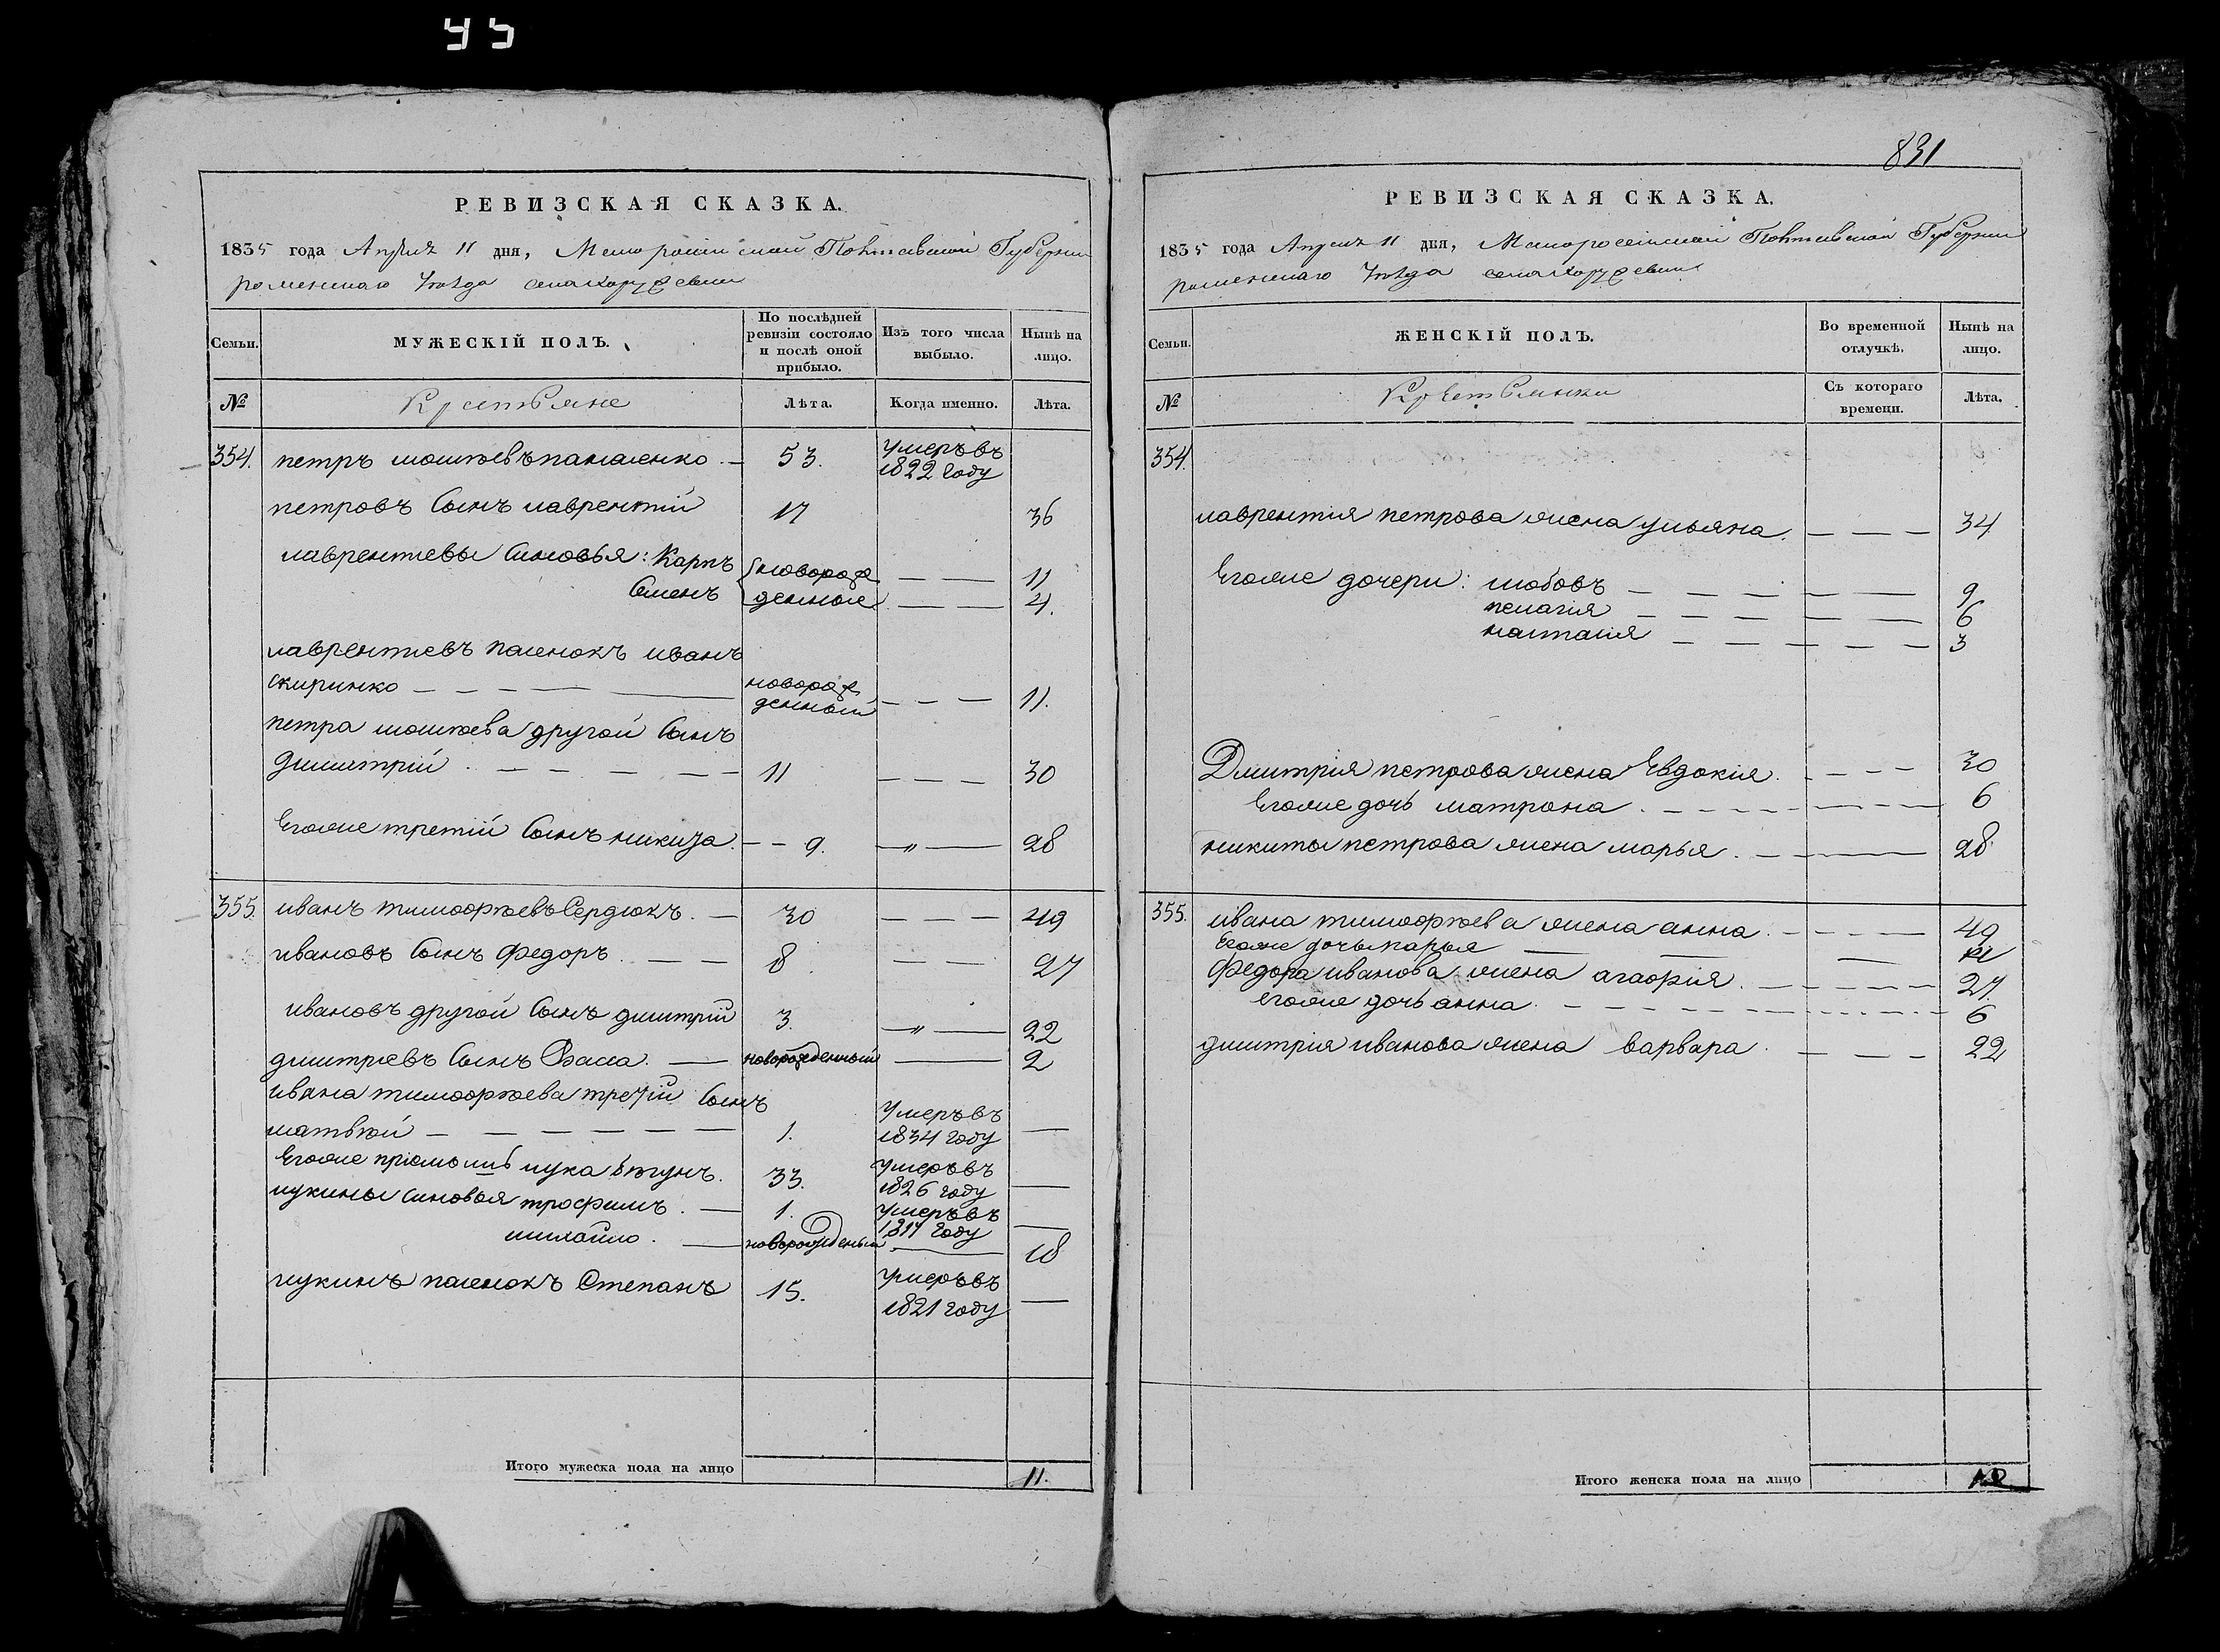 831
РЕВИЗСКАЯ СКАЗКА.
1835 года Апреля 11 дня, Малороссійской Полтавской Губерніи
роменскаго Уѣзда села Хоружевки
Семьи.
МУЖЕСКІЙ ПОЛЪ.
По послѣдней ревизіи состояло и послѣ оной прибыло.
Изъ того числа выбыло.
Нынѣ на лицо.
№
Крестьяне
Лѣта.
Когда именно.
Лѣта.
354. петръ 53. умеръ въ 1822 году
петровъ Сынъ лаврентій 17 36
лаврентіевы Синовья: Карпъ новорож 11
Семенъ денные 4.
лаврентіевъ пасенокъ иванъ
скиринко новорож денный 11.
петра другой Сынъ
димитрій 11 30
Егоже третій Сынъ никита 9. 28
355. иванъ тимофѣевъ Сердюкъ. 30 49
ивановъ Сынъ федоръ. 8 27
ивановъ другой Сынъ дмитрій 3. 22
дмитріевъ Сынъ новорожденный 2
ивана тимофѣева третій Сынъ
матвѣй 1. Умеръ въ 1834 году
Егоже лука бѣгунъ. 33. умеръ въ 1826 году
лукины синовья трофимъ. 1. умеръ въ 1817 году
михайло. новорожденый 18
лукинъ пасенокъ Степанъ 15. умеръ въ 1821 году
Итого мужеска пола на лицо 11.
РЕВИЗСКАЯ СКАЗКА.
1835 года Апреля 11 дня, Малороссійской Полтавской Губерніи
роменскаго Уѣзда села Хоружевки
Семьи.
ЖЕНСКІЙ ПОЛЪ.
Во временной отлучкѣ.
Нынѣ на лицо.
№
Крестьянки
Съ котораго времени.
Лѣта.
354.
лаврентія петрова жена ульяна. 34
Егоже дочери: любовъ 9
пелагія 6
настасія 3
Дмитрія петрова жена Евдокія. 30
Егоже дочь матрона. 6
никиты петрова жена марья. 28.
355. ивана тимофѣева жена анна. 49
Егоже дочь марья
федора иванова жена агафія. 27.
Егоже дочь анна. 6
дмитрія иванова жена варвара. 22
Итого женска пола на лицо 12